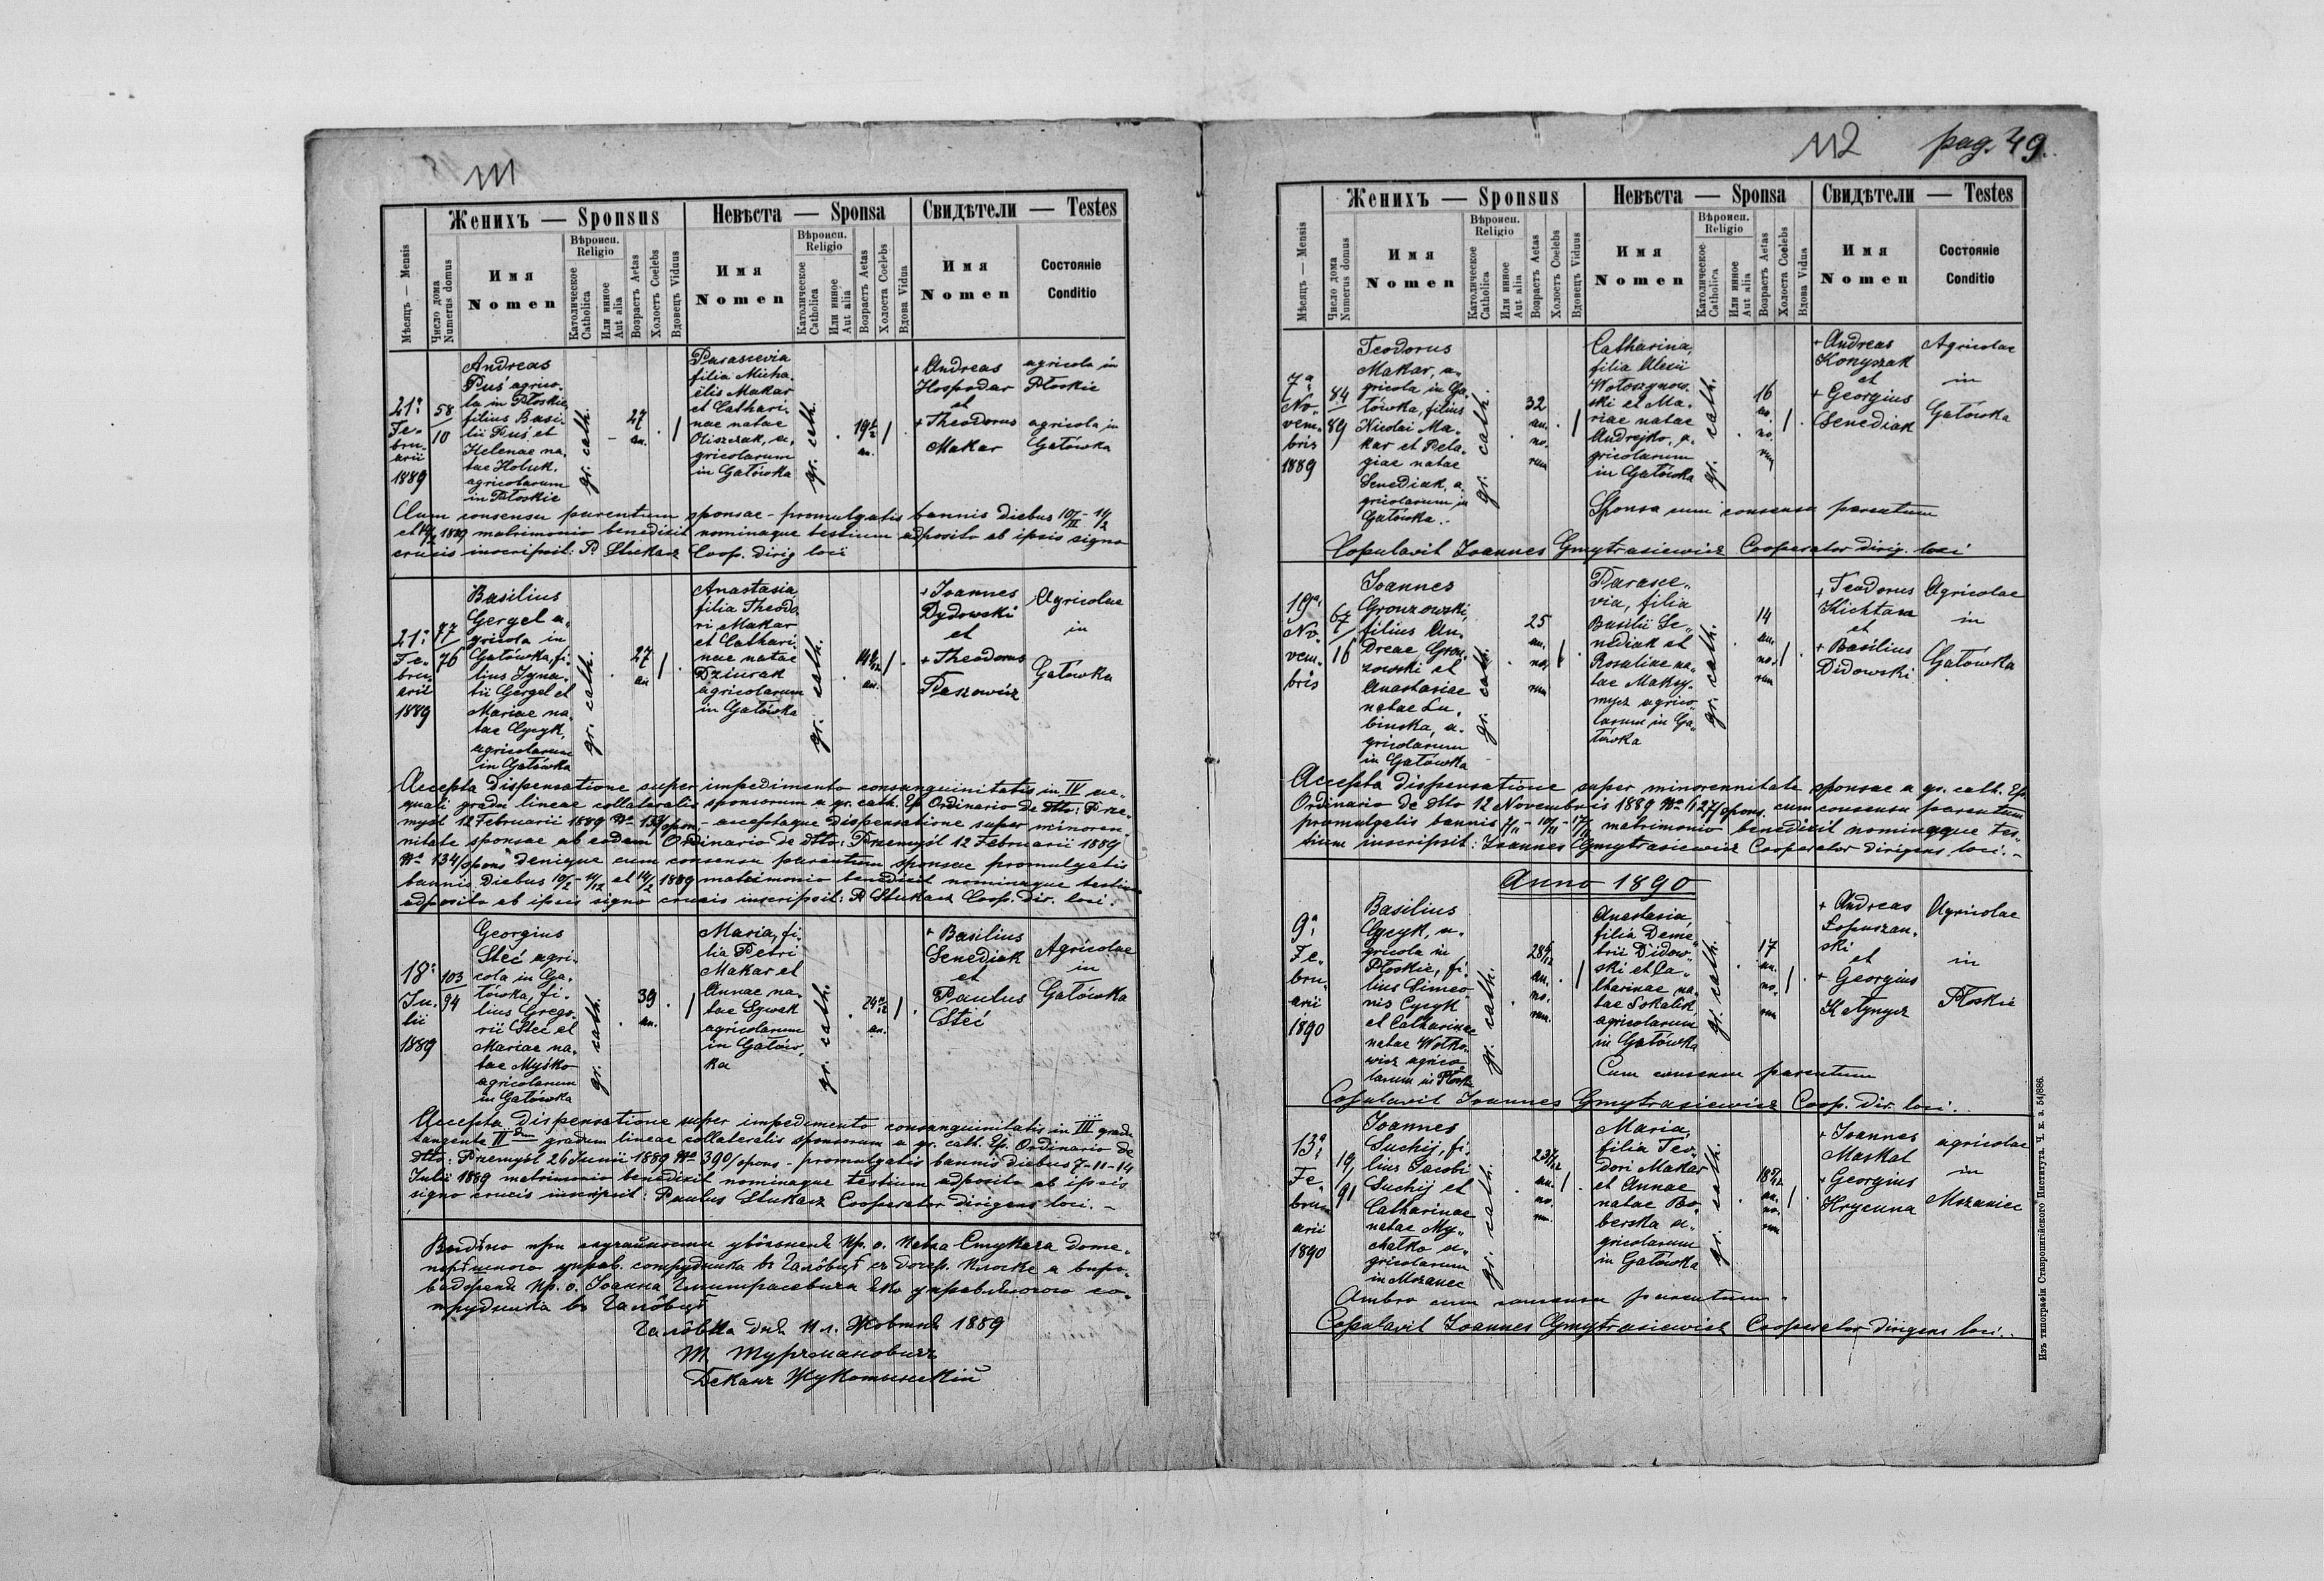 111
Женихъ — Sponsus
Невѣста — Sponsa
Свидѣтели — Testes
Мѣсяць — Mensis
Число дома
Numerus domus
Имя
Nomen
Вѣроисп.
Religio
Католическое
Catholica
Или инное
Aut alia
Возрастъ Aetas
Холостъ Coelebs
Вдовецъ Viduus
Имя
Nomen
Вѣроисп.
Religio
Католическое
Catholica
Или инное
Aut alia
Возрастъ Aetas
Холоста Coelebs
Вдова Vidua
Имя
Nomen
Состояніе
Conditio
21ª
Fe-
bru-
arii
1889
58
10
Andreas
Puś agrico-
la in Płoskie
filius Basi-
lii Puś et
Helenae na-
tae Holuk.
agricolarum
in Płoskie
gr. cath.
27
an.
Parascevia
filia Micha-
ëlis Makar
et Cathari-
nae natae
Oliszczak, a-
gricolarum
in Gałówka
gr. cath.
an.
+ Andreas
Hospodar
et
+ Theodorus
Makar
agricola in
Płoskie
agricola in
Gałówka
Cum consensu parentum sponsae - promulgatis bannis diebus 10/II - 14/2
et 17/2 1889 matrimonio benedixit nominaque testium adposito ab ipsis signo
crucis inscripsit: P. Stukacz Coop. dirig loci
21ª
Fe-
bru-
arii
1889
77
76
Basilius
Gergel a-
gricola in
Gałówka, fi-
lius Igna-
tii Gergel et
Mariae na-
tae Cycyk,
agricolarum
in Gałówka
gr. cath.
27
an
Anastasia
filia Theodo-
ri Makar
et Cathari-
nae natae
Dziurak
agricolarum
in Gałówka
gr. cath.
an.
+ Joannes
Dydowski
et
+ Theodorus
Agricolae
in
Gałówka
Accepta dispensatione super impedimento consanguinitatis in IV ae-
quali gradu lineae collateralis sponsorum a gr. cath. Ep. Ordinario de dtto: Prze-
myśl 12 Februarii 1889 Nº 133/spons - acceptaque dispensatione super minoren-
nitate sponsae ab eodem Ordinario de dtto: Przemyśl 12 Februarii 1889
Nº 134/spons denique cum consensu parentum sponsae promulgatis
bannis diebus 10/2 - 14/12 et 14/2 1889 matrimonio benedixit nominaque testium
adposito ab ipsis signo crucis inscripsit: P. Stukacz Coop. dir. loci.
18ª
Ju-
lii
1889
103
94
Georgius
Steć agri-
cola in Ga-
łówka, fi-
lius Grego-
rii Steć et
Mariae na-
tae Myśko
agricolarum
in Gałówka
gr. cath.
39
an.
Maria, fi-
lia Petri
Makar et
Annae na-
tae Sywak
agricolarum
in Gałów-
ka
gr. cath.
an.
+ Basilius
Senediak
et
Paulus
Steć
Agricolae
in
Gałówka
Accepta dispensatione super impedimento consanguinitatis in III gradu
tangente II dum gradum lineae collateralis sponsorum a gr. cath. Ep. Ordinario de
dtto: Przemyśl 26 Junii 1889 Nº 390/spons - promulgatis bannis diebus 7-11-14
Julii 1889 matrimonio benedixit nominaque testium adposito ab ipsis
signo crucis inscripsit: Paulus Stukacz Cooperator dirigens loci. -
Видѣно при Пр. о. Павла Стукача
управ. сотрудника въ
Пр. о. Іоанна яко со-
трудника въ
Галôвка дня 11 л. Жовтня 1889
Деканъ Жукотынскій
112
pag. 49.
Женихъ — Sponsus
Невѣста — Sponsa
Свидѣтели — Testes
Мѣсяць — Mensis
Число дома
Numerus domus
Имя
Nomen
Вѣроисп.
Religio
Католическое
Catholica
Или инное
Aut alia
Возрастъ Aetas
Холостъ Coelebs
Вдовецъ Viduus
Имя
Nomen
Вѣроисп.
Religio
Католическое
Catholica
Или инное
Aut alia
Возрастъ Aetas
Холоста Coelebs
Вдова Vidua
Имя
Nomen
Состояніе
Conditio
7ª
No-
vem-
bris
1889
84
89
Teodorus
Makar, a-
gricola in Ga-
łówka, filius
Nicolai Ma-
kar et Pela-
giae natae
Senediak, a-
gricolarum in
Gałówka.-
gr. cath.
32
an.
no.
rum
Catharina,
filia Alexii
Wołoszynow-
ski et Ma-
riae natae
Andrejko, a-
gricolarum
in Gałówka
gr. cath.
16
an.
no.
rum
+ Andreas
Konyszak
et
+ Georgius
Senediak
Agricolae
in
Gałówka
Sponsa cum consensu parentum
Copulavit Joannes Gmytrasiewicz Cooperator dirig. loci
19ª
No-
vem-
bris
67
16
Joannes
Gronzowski,
filius An-
dreae Gron-
zowski et
Anastasiae
natae Lu-
binska, a-
gricolarum
in Gałówka
gr. cath.
25
an.
no.
rum
Parasce-
via, filia
Basilii Se-
nediak et
Rosaliae na-
tae Maksy-
mycz agrico-
larum in Ga-
łówka
gr. cath.
14
an.
no.
rum
+ Teodorus
Klichtan
et
+ Basilius
Didowski
Agricolae
in
Gałówka
Accepta dispensatione super minorennitate sponsae a gr. cath. Ep.
Ordinario de dtto 12 Novembris 1889 Nº 627/spons. cum consensu parentum
promulgatis bannis 7/11 - 10/11 - 17/11 matrimonio benedixit nominaque tes-
tium inscripsit: Joannes Gmytrasiewicz Cooperator dirigens loci. -
Anno 1890
9ª
Fe-
bru-
arii
1890
Basilius
Cycyk, a-
gricola in
Płoskie, fi-
lius Simeo-
nis Cycyk
et Catharinae
natae Wołko-
wicz agrico-
larum in Płoskie
gr. cath.
an.
no.
rum.
Anastasia,
filia Deme-
trii Didow-
ski et Ca-
tharinae na-
tae Sokalik
agricolarum
in Gałówka
gr. cath.
17
an.
no.
rum
+ Andreas
Łopuszan-
ski
et
+ Georgius
Katynycz
Agricolae
in
Płoskie
Cum consensu parentum
Copulavit Joannes Gmytrasiewicz Coop. dir. loci.
13ª
Fe-
bru-
arii
1890
19
91
Joannes
Suchij, fi-
lius Jacobi
Suchij et
Catharinae
natae My-
chałko a-
gricolarum
in Mszanec
gr. cath.
an.
no.
rum.
Maria,
filia Teo-
dori Makar
et Annae
natae Bo-
berska a-
gricolarum
in Gałówka
gr. cath.
an.
no.
rum
+ Joannes
Maskal
+ Georgius
Hrycuna
agricolae
in
Mszaniec
Ambro cum consensu parentum.
Copulavit Joannes Gmytrasiewicz Cooperator dirigens loci..
Изъ типографіи Ставропигійского Института. Ч. к. з. 54/886.